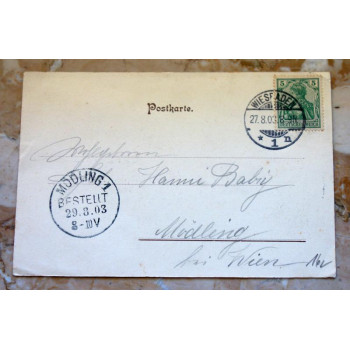 Postkarte.
5
WIESBADEN
27.8.03
* 1 n
MÖDLING 1.
BESTELLT
29.8.03
8-IIIV
Hanni Baby
Mödling
bei Wien